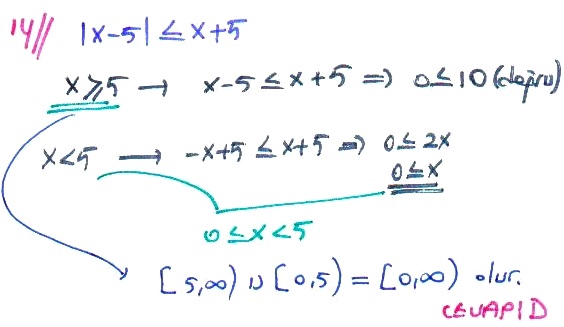 14// |x-5| ≤ x+5
x≥5 → x-5 ≤ x+5 ⇒ 0≤10 (doğru)
x<5 → -x+5 ≤ x+5 ⇒ 0≤2x
0≤x
0≤x<5
[5,∞) ∪ [0,5) = [0,∞) olur.
CEVAP D